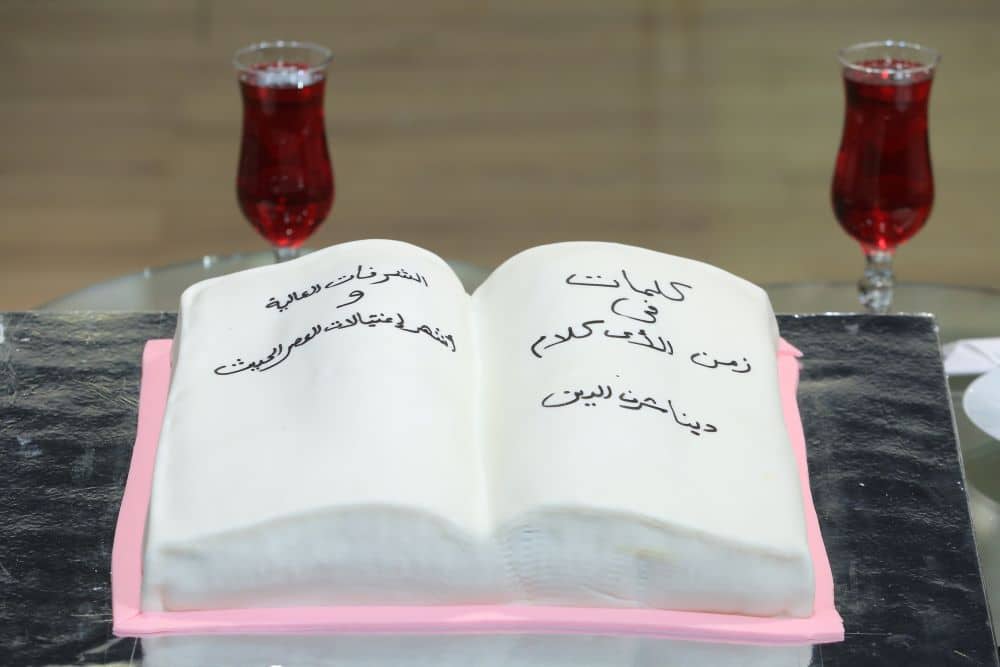 كلمات
فى
زمن الأى كلام
دينا شرف الدين
الشرفات العالية
و
أشهر إغتيالات العصر الحديث